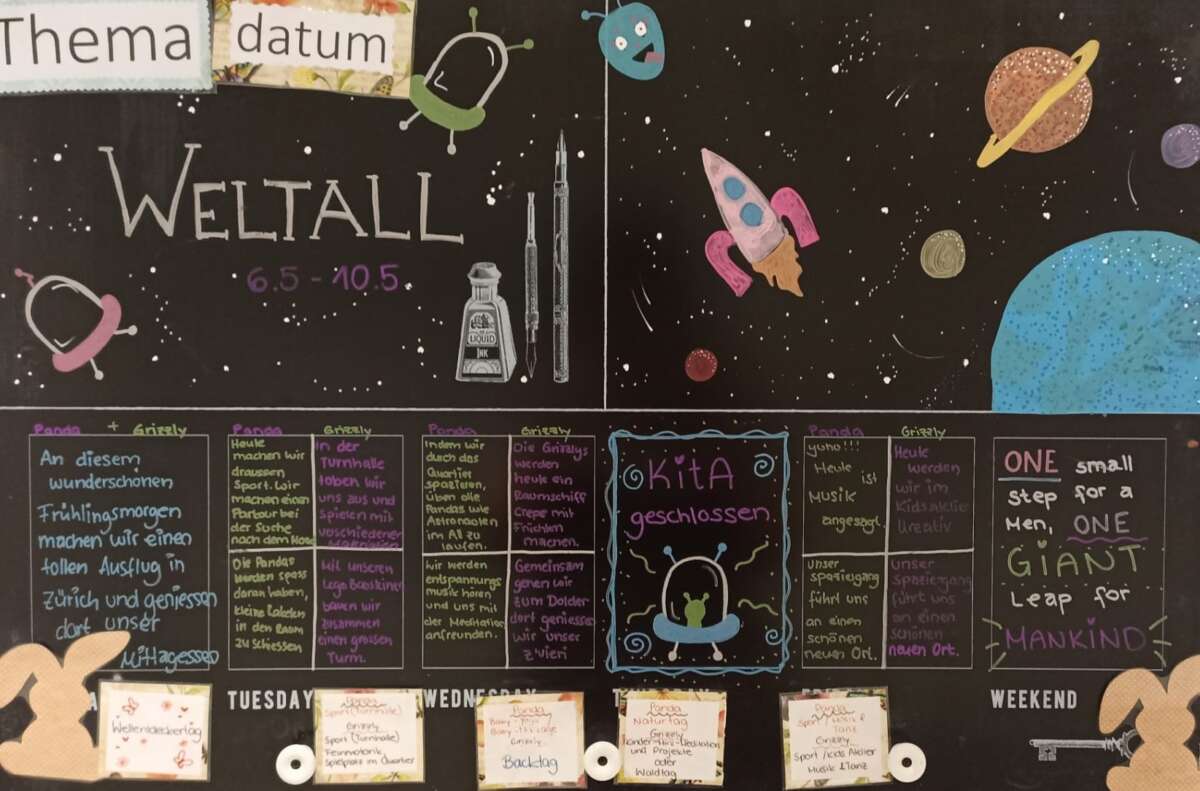 Thema
datum
WELTALL
6.5 - 10.5
LIQUID
INK
Panda + Grizzly
An diesem
wunderschönen
Frühlingsmorgen
machen wir einen
tollen Ausflug in
Zürich und geniessen
dort unser
Mittagessen
Panda
Heute
machen wir
draussen
Sport. Wir
machen einen
Parkour bei
der Suche
nach dem Mond
Grizzly
In der
Turnhalle
toben wir
uns aus und
spielen mit
verschiedenen
Materialien
Die Pandas
werden spass
daran haben,
kleine Raketen
in den Raum
zu schiessen
Mit unseren
Lego Bausteinen
bauen wir
zusammen
einen grossen
Turm.
Panda
Indem wir
durch das
Quartier
spazieren,
üben die
Pandas wie
Astronauten
im All zu
laufen.
Grizzly
Die Grizzlys
werden
heute ein
Raumschiff
Crepe mit
Früchten
machen.
wir werden
entspannungs
musik hören
und uns mit
der Meditation
anfreunden.
Gemeinsam
gehen wir
zum Dolder
dort geniessen
wir unser
Zvieri
KitA
geschlossen
Panda
yuhu!!!
Heute
ist
Musik
angesagt.
Grizzly
Heute
werden
wir im
Kidsaktiv
kreativ
unser
spaziergang
führt uns
an einen
schönen
neuen Ort.
unser
Spaziergang
führt uns
an einen
schönen
neuen Ort.
ONE small
step for a
Men, ONE
GIANT
Leap for
MANKIND
TUESDAY
WEDNESDAY
WEEKEND
Weltentdeckertag
Sport (Turnhalle)
Grizzly
Sport (Turnhalle)
Feinmotorik
Spielplatz im Quartier
Panda
Grizzly
Backtag
Panda
Naturtag
Grizzly
und Projekte
oder
Waldtag
Panda
Sport Musik &
Tanz
Grizzly
Sport /Kids Atelier
Musik & Tanz